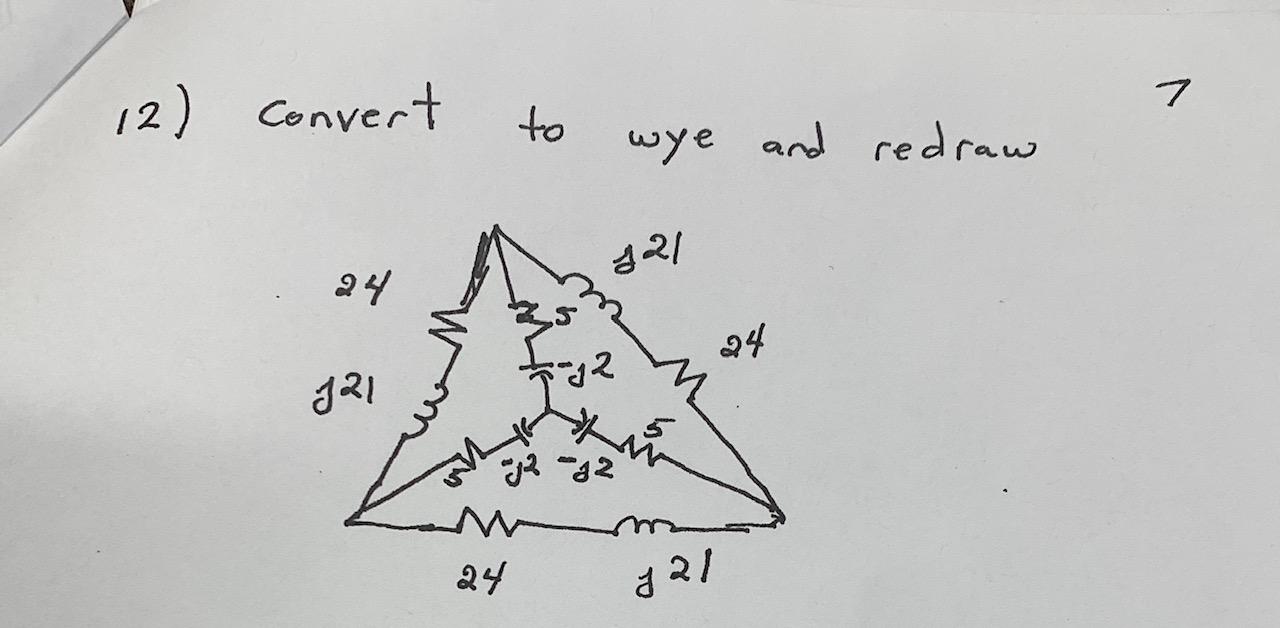 12) Convert to wye and redraw
7
j21
24
5
24
-j2
j21
5
5
-j2
-j2
24
j21